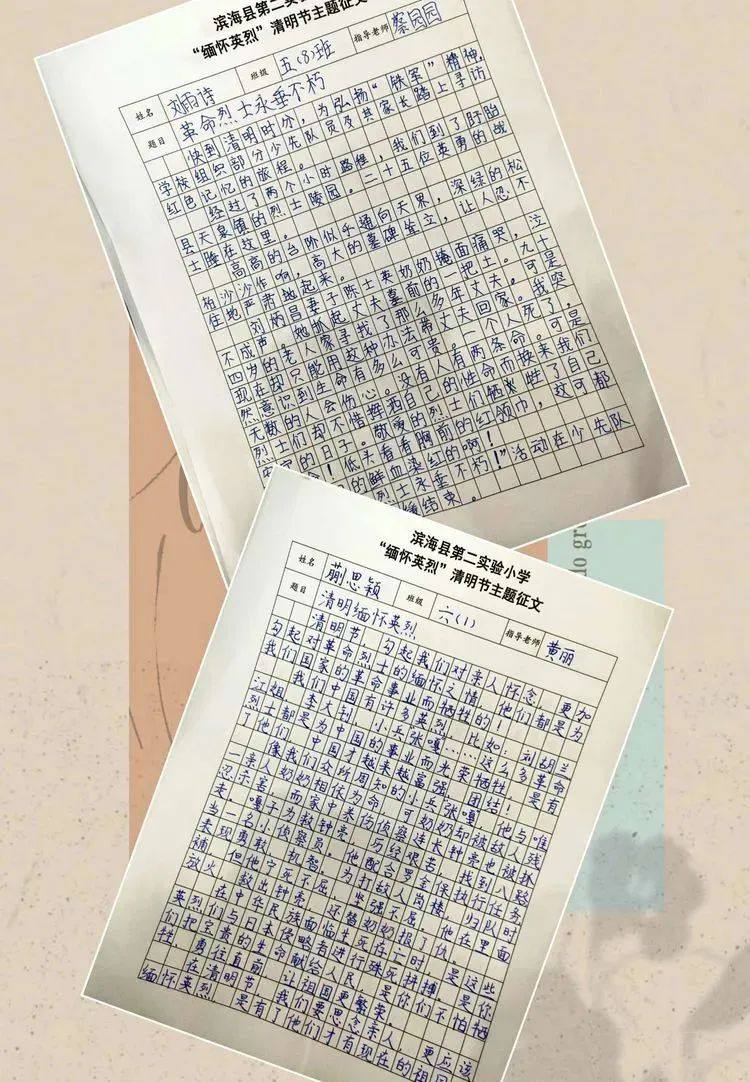 滨海县第二实验小学
“缅怀英烈”清明节主题征文
姓名 刘雨诗 班级 五(8)班 指导老师 蔡园园
题目 革命烈士永垂不朽
快到清明时分，为弘扬“铁军”精神，
学校组织部分少先队员及其家长踏上寻访
红色记忆的旅程。
经过了两个小时路程，我们到了盱眙
县天泉镇的烈士陵园。二十五位英勇的战
士睡在这里。
高高的台阶似乎通向天界，深绿的松
柏沙沙作响，高大的墓碑耸立，让人忍不
住地严肃起来。
刘炳昌妻子陈士英奶奶掩面痛哭，泣
不成声。她抓起丈夫墓前的一把土。九十
四岁的老人家寻找了那么多年丈夫。可是
现在却只能用这种办法带丈夫回家。我突
然意识到生命有多么可贵。一个人死了，
无数的人会伤心。没有人有两条命。可是
烈士们却不惜挥洒自己的性命而换来我们
的日子。敬爱的烈士们牺牲了自己
！低头看看胸前的红领巾，这可都
的鲜血染红的啊！
烈士永垂不朽！”活动在少先队
结束。
滨海县第二实验小学
“缅怀英烈”清明节主题征文
姓名 蒯思颖 班级 六(1) 指导老师 黄丽
题目 清明缅怀英烈
清明节，勾起我们对亲人怀念，更加
勾起对革命烈士的缅怀之情，他们都是为
我们国家的革命事业而牺牲的！
我们中国有许多英烈，比如：刘胡兰
江姐、李大钊、小兵张嘎……这么多革命
烈士都是为中国的事业而光荣牺牲，是有
了他们，中国才越来越富强、团结！
像我们众所周知的小兵张嘎，他与唯
一亲人奶奶相依为命，可奶奶却被敌人残
忍杀害，而家中养伤侦察连长钟亮也被抓
来。嘎子为救钟亮，历经艰苦，找到八路
当一名小侦察员。他配合罗金保执行任务
表现勇敢、机智。为打敌人岗楼，归队时
捕，但他宁死不屈，坚强不屈。他在里面
放火，救出钟亮，还替奶奶报了仇。
在中华民族面临生死存亡时，是这些
英烈们与日本侵略者进行殊死拼搏，是你
们把宝贵的生命献给人民，是你们不怕牺
牲，勇往直前，让祖国更繁荣。
在清明节，我们要思念亲人，更应该
缅怀英烈，是有了他们才有现在的祖国